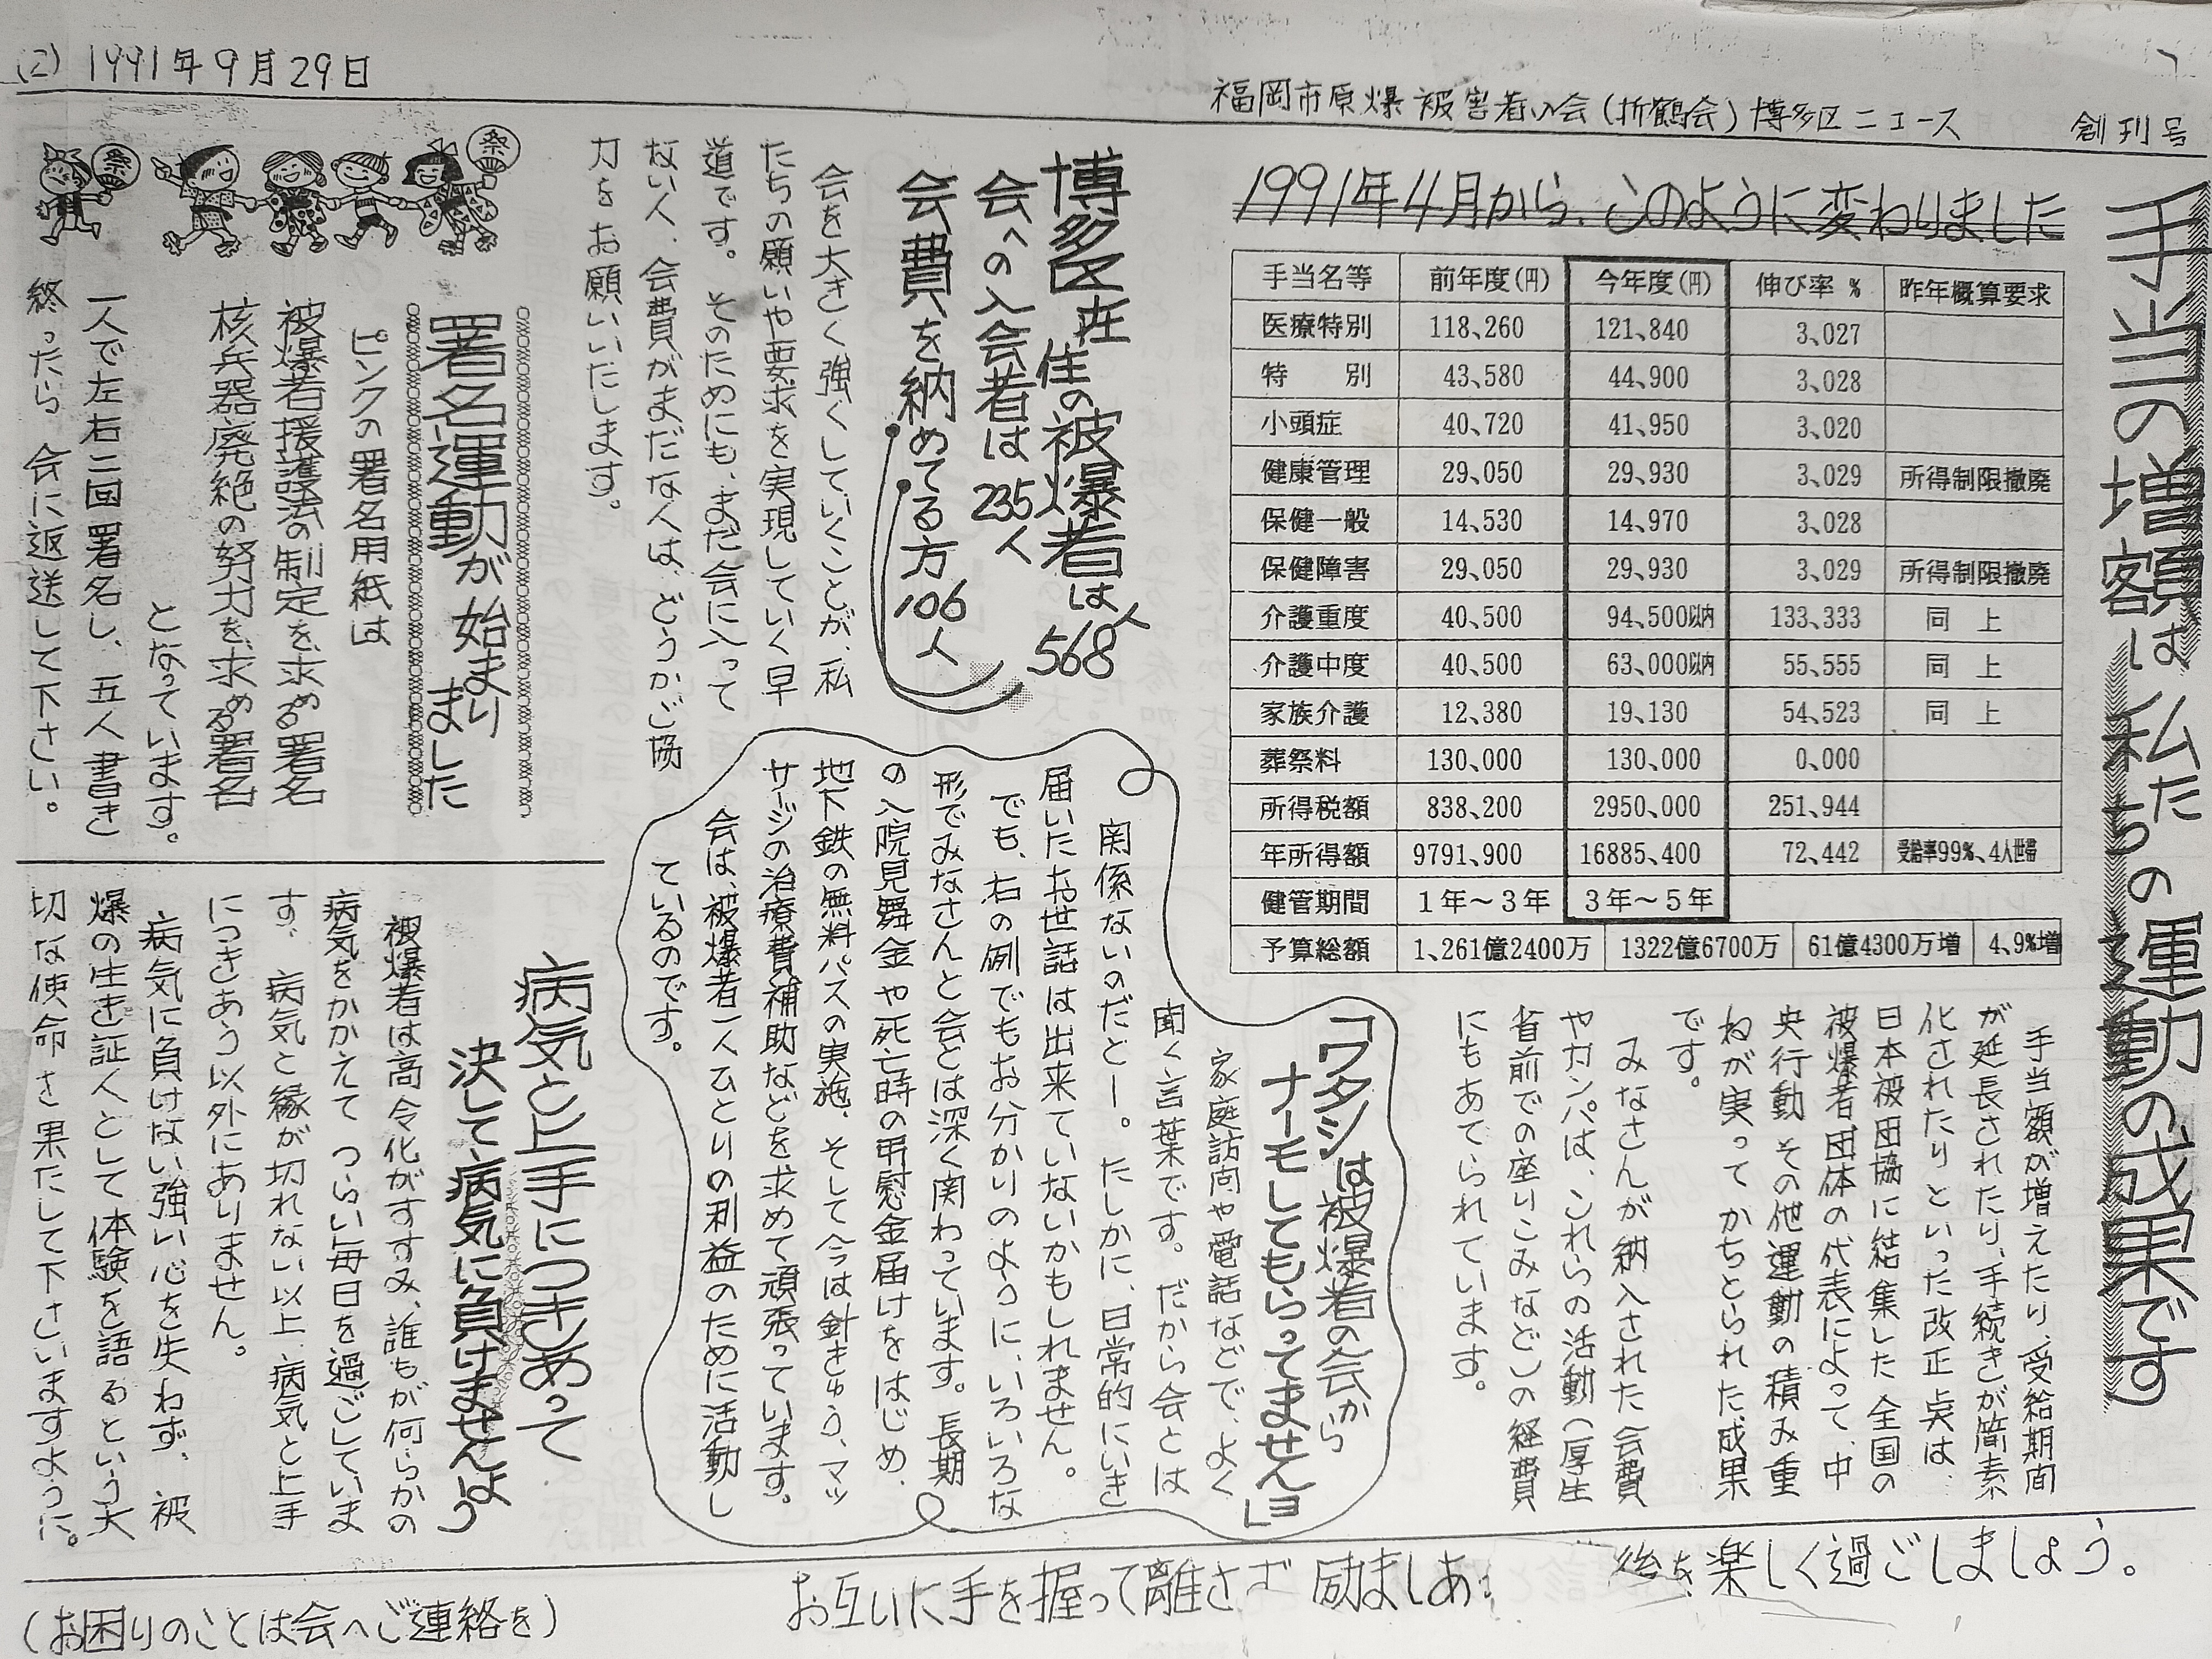 (2) 1991年9月29日
福岡市原爆被害者の会(折鶴会)博多区ニュース
創刊号
手当の増額は私たちの運動の成果です
1991年4月から、このように変わりました
手当名等 前年度(円) 今年度(円) 伸び率 % 昨年概算要求
医療特別 118、260 121、840 3、027
特 別 43、580 44、900 3、028
小頭症 40、720 41、950 3、020
健康管理 29、050 29、930 3、029 所得制限撤廃
保健一般 14、530 14、970 3、028
保健障害 29、050 29、930 3、029 所得制限撤廃
介護重度 40、500 94、500以内 133、333 同 上
介護中度 40、500 63、000以内 55、555 同 上
家族介護 12、380 19、130 54、523 同 上
葬祭料 130、000 130、000 0、000
所得税額 838、200 2950、000 251、944
年所得額 9791、900 16885、400 72、442 受給率99%、4人世帯
健管期間 1年〜3年 3年〜5年
予算総額 1、261億2400万 1322億6700万 61億4300万増 4、9%増
手当額が増えたり、受給期間
が延長されたり、手続きが簡素
化されたりといった改正点は、
日本被団協に結集した全国の
被爆者団体の代表によって、中
央行動その他運動の積み重
ねが実ってかちとられた成果
です。
みなさんが納入された会費
やカンパは、これらの活動(厚生
省前での座りこみなど)の経費
にもあてられています。
博多区在住の被爆者は568人
会への入会者は235人
会費を納めてる方106人
会を大きく強くしていくことが、私
たちの願いや要求を実現していく早
道です。そのためにも、まだ会に入って
ない人、会費がまだな人は、どうかご協
力をお願いいたします。
「ワタシは被爆者の会から
ナーモしてもらってませんヨ」
家庭訪問や電話などで、よく
聞く言葉です。だから会とは
関係ないのだとー。たしかに、日常的にいき
届いたお世話は出来ていないかもしれません。
でも、右の例でもお分かりのように、いろいろな
形でみなさんと会とは深く関わっています。長期
の入院見舞金や死亡時の弔慰金届けをはじめ、
地下鉄の無料パスの実施。そして今は針きゅう、マッ
サージの治療費補助などを求めて頑張っています。
会は、被爆者一人ひとりの利益のために活動し
ているのです。
祭
祭
署名運動が始まりました
ピンクの署名用紙は
被爆者援護法の制定を求める署名
核兵器廃絶の努力を求める署名
となっています。
一人で左右二回署名し、五人書き
終ったら会に返送して下さい。
病気と上手につきあって
決して病気に負けませんよう
被爆者は高令化がすすみ、誰もが何らかの
病気をかかえてつらい毎日を過ごしていま
す。病気と縁が切れない以上、病気と上手
につきあう以外にありません。
病気に負けない強い心を失わず、被
爆の生き証人として体験を語るという大
切な使命を果たして下さいますように。
お互いに手を握って離さず 励ましあ 後を楽しく過ごしましょう。
(お困りのことは会へご連絡を)